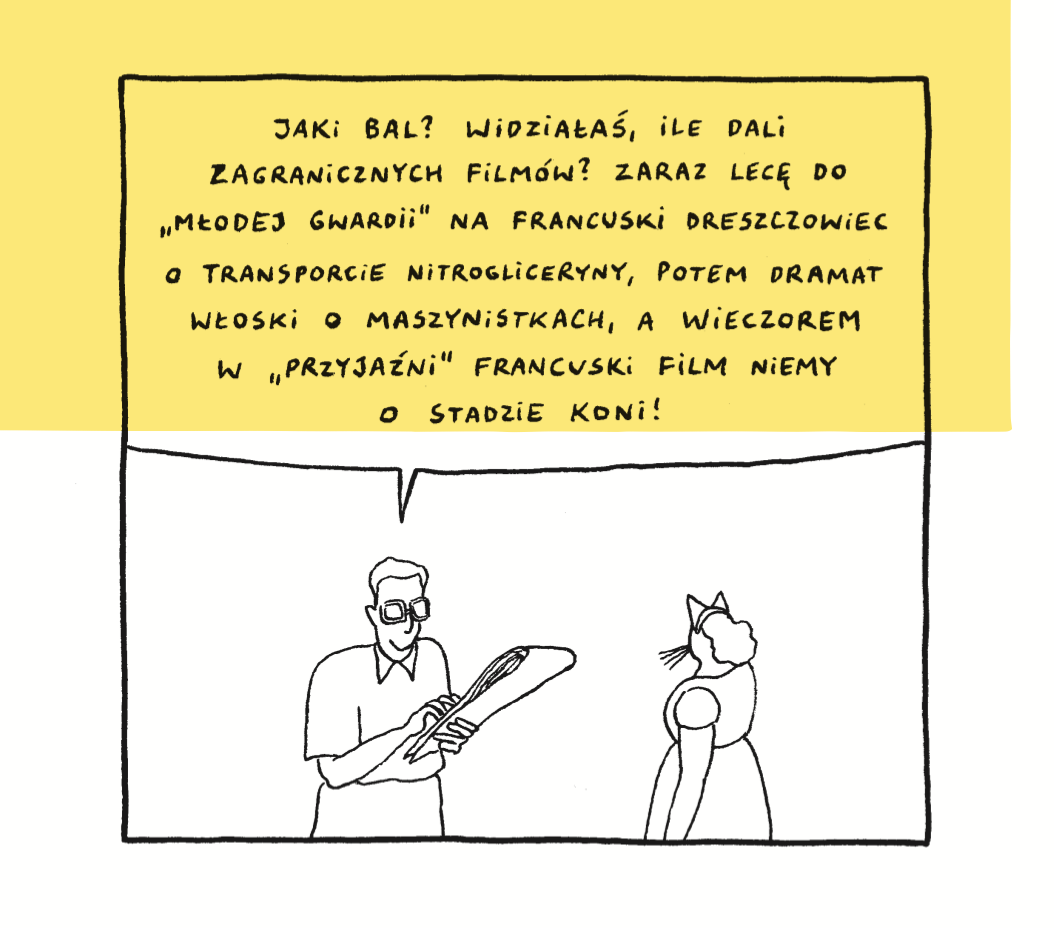 JAKi BAL? WiDZiAŁAŚ, iLE DALi
ZAGRANiCZNYCH FiLMÓW? ZARAZ LECĘ DO
„MŁODEJ GWARDii" NA FRANCUSKi DRESZCZOWiEC
O TRANSPORCiE NiTROGLiCERYNY, POTEM DRAMAT
WŁOSKi O MASZYNiSTKACH, A WiECZOREM
W „PRZYJAŹNi" FRANCUSKi FiLM NiEMY
O STADZiE KONi!